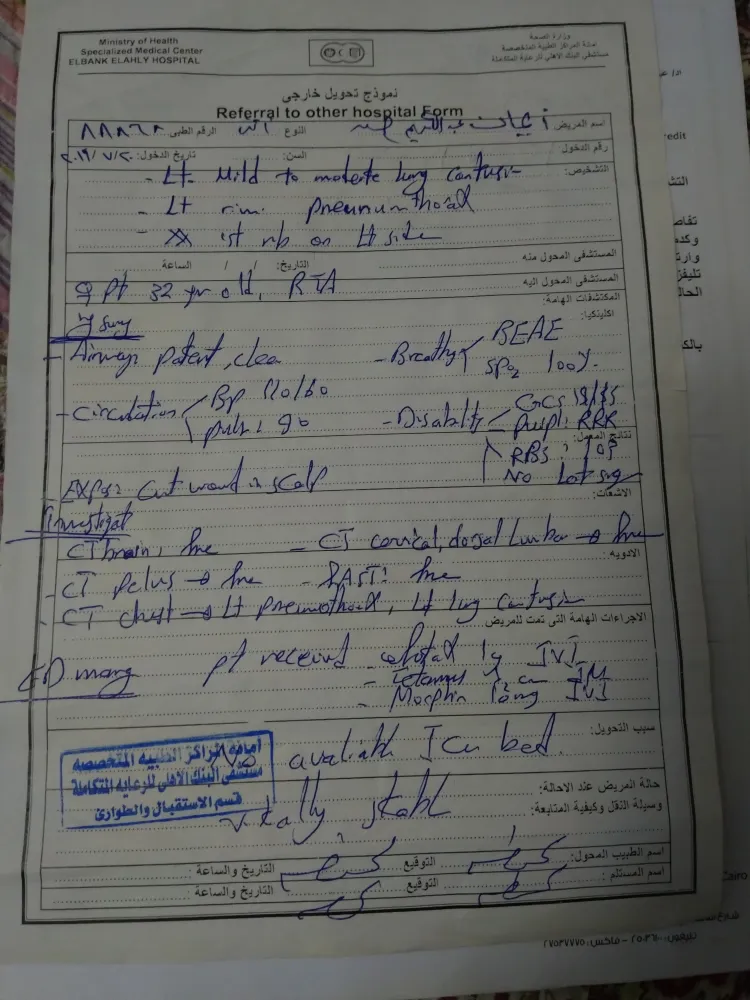 Ministry of Health
Specialized Medical Center
ELBANK ELAHLY HOSPITAL
وزارة الصحة
امانة المراكز الطبية المتخصصة
مستشفى البنك الاهلي للرعاية المتكاملة
نموذج تحويل خارجي
Referral to other hospital Form
اسم المريض: النوع انثى الرقم الطبى: ٨٨٨٦٨
رقم الدخول: السن: تاريخ الدخول: ٢٠١٩/٧/٢٠
التشخيص: - Lt Mild to moderate lung contusion
- Lt rim pneumothorax
- XX 1st rib on Lt side
المستشفى المحول منه
التاريخ: / / الساعة
المستشفى المحول اليه
♀ pt 32 yr old, RTA
المكتشفات الهامة:
اكلينكيا:
- Airway: patent, clear - Breathing BEAE
SPO2 100%
- Circulation BP 110/60
pulse: 90
- Disability GCS 15/15
pupil: RRR
نتائج المعمل:
RBS: 109
No Lat sig
- Expos: Cut wound in scalp
الاشعات:
Investigat
CT brain: free - CT cervical, dorsal lumbar → free
الادويه:
- CT pelvis → free - FAST: free
- CT chest → Lt pneumothorax, Lt lung contusion
الاجراءات الهامة التى تمت للمريض
ED manag pt received - cefotax 1g IVI
- Tetanus IM
- Morphin 10mg IVI
سبب التحويل:
No available ICU bed.
حالة المريض عند الاحالة:
وسيلة النقل وكيفية المتابعة:
vitally stable
امانة المراكز الطبيه المتخصصه
مستشفى البنك الأهلى للرعايه المتكاملة
قسم الاستقبال والطوارئ
اسم الطبيب المحول: التوقيع التاريخ والساعة :
اسم المستلم : التوقيع التاريخ والساعة :
edit
تفاص
وكده
وارت
تليفز
الحال
بالك
Cairo
شارع